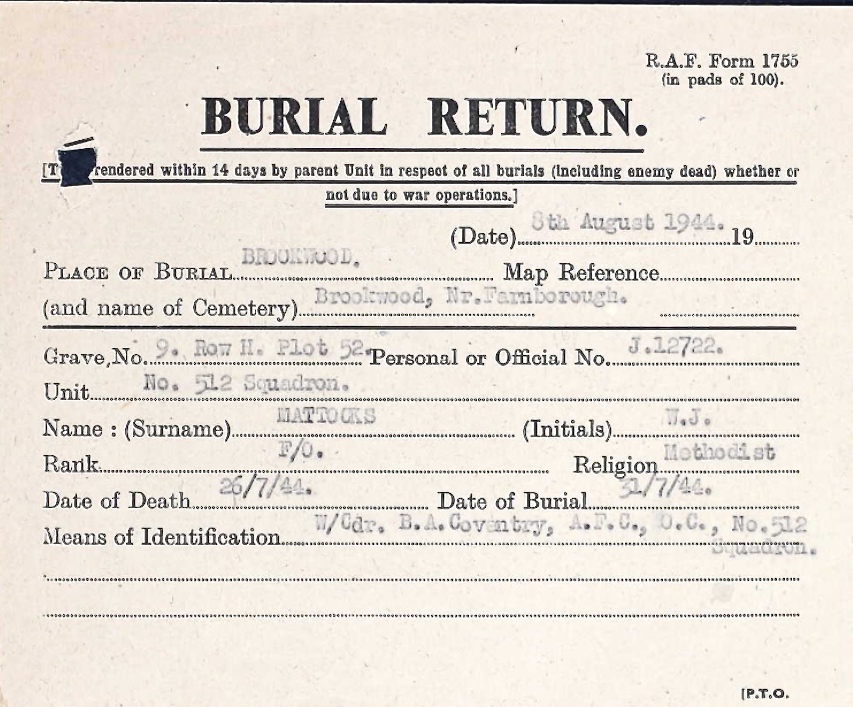 R.A.F. Form 1755
(in pads of 100).
BURIAL RETURN.
[T rendered within 14 days by parent Unit in respect of all burials (including enemy dead) whether or
not due to war operations.]
(Date) 8th August 1944. 19
PLACE OF BURIAL BROOKWOOD. Map Reference
(and name of Cemetery) Brookwood, Nr.Farnborough.
Grave, No. 9. Row H. Plot 52. Personal or Official No. J.12722.
Unit No. 512 Squadron.
Name : (Surname) MATTOCKS (Initials) W.J.
Rank F/O. Religion Methodist
Date of Death 26/7/44. Date of Burial 31/7/44.
Means of Identification W/Cdr. B.A.Coventry, A.F.C., O.C., No.512
Squadron.
[P.T.O.